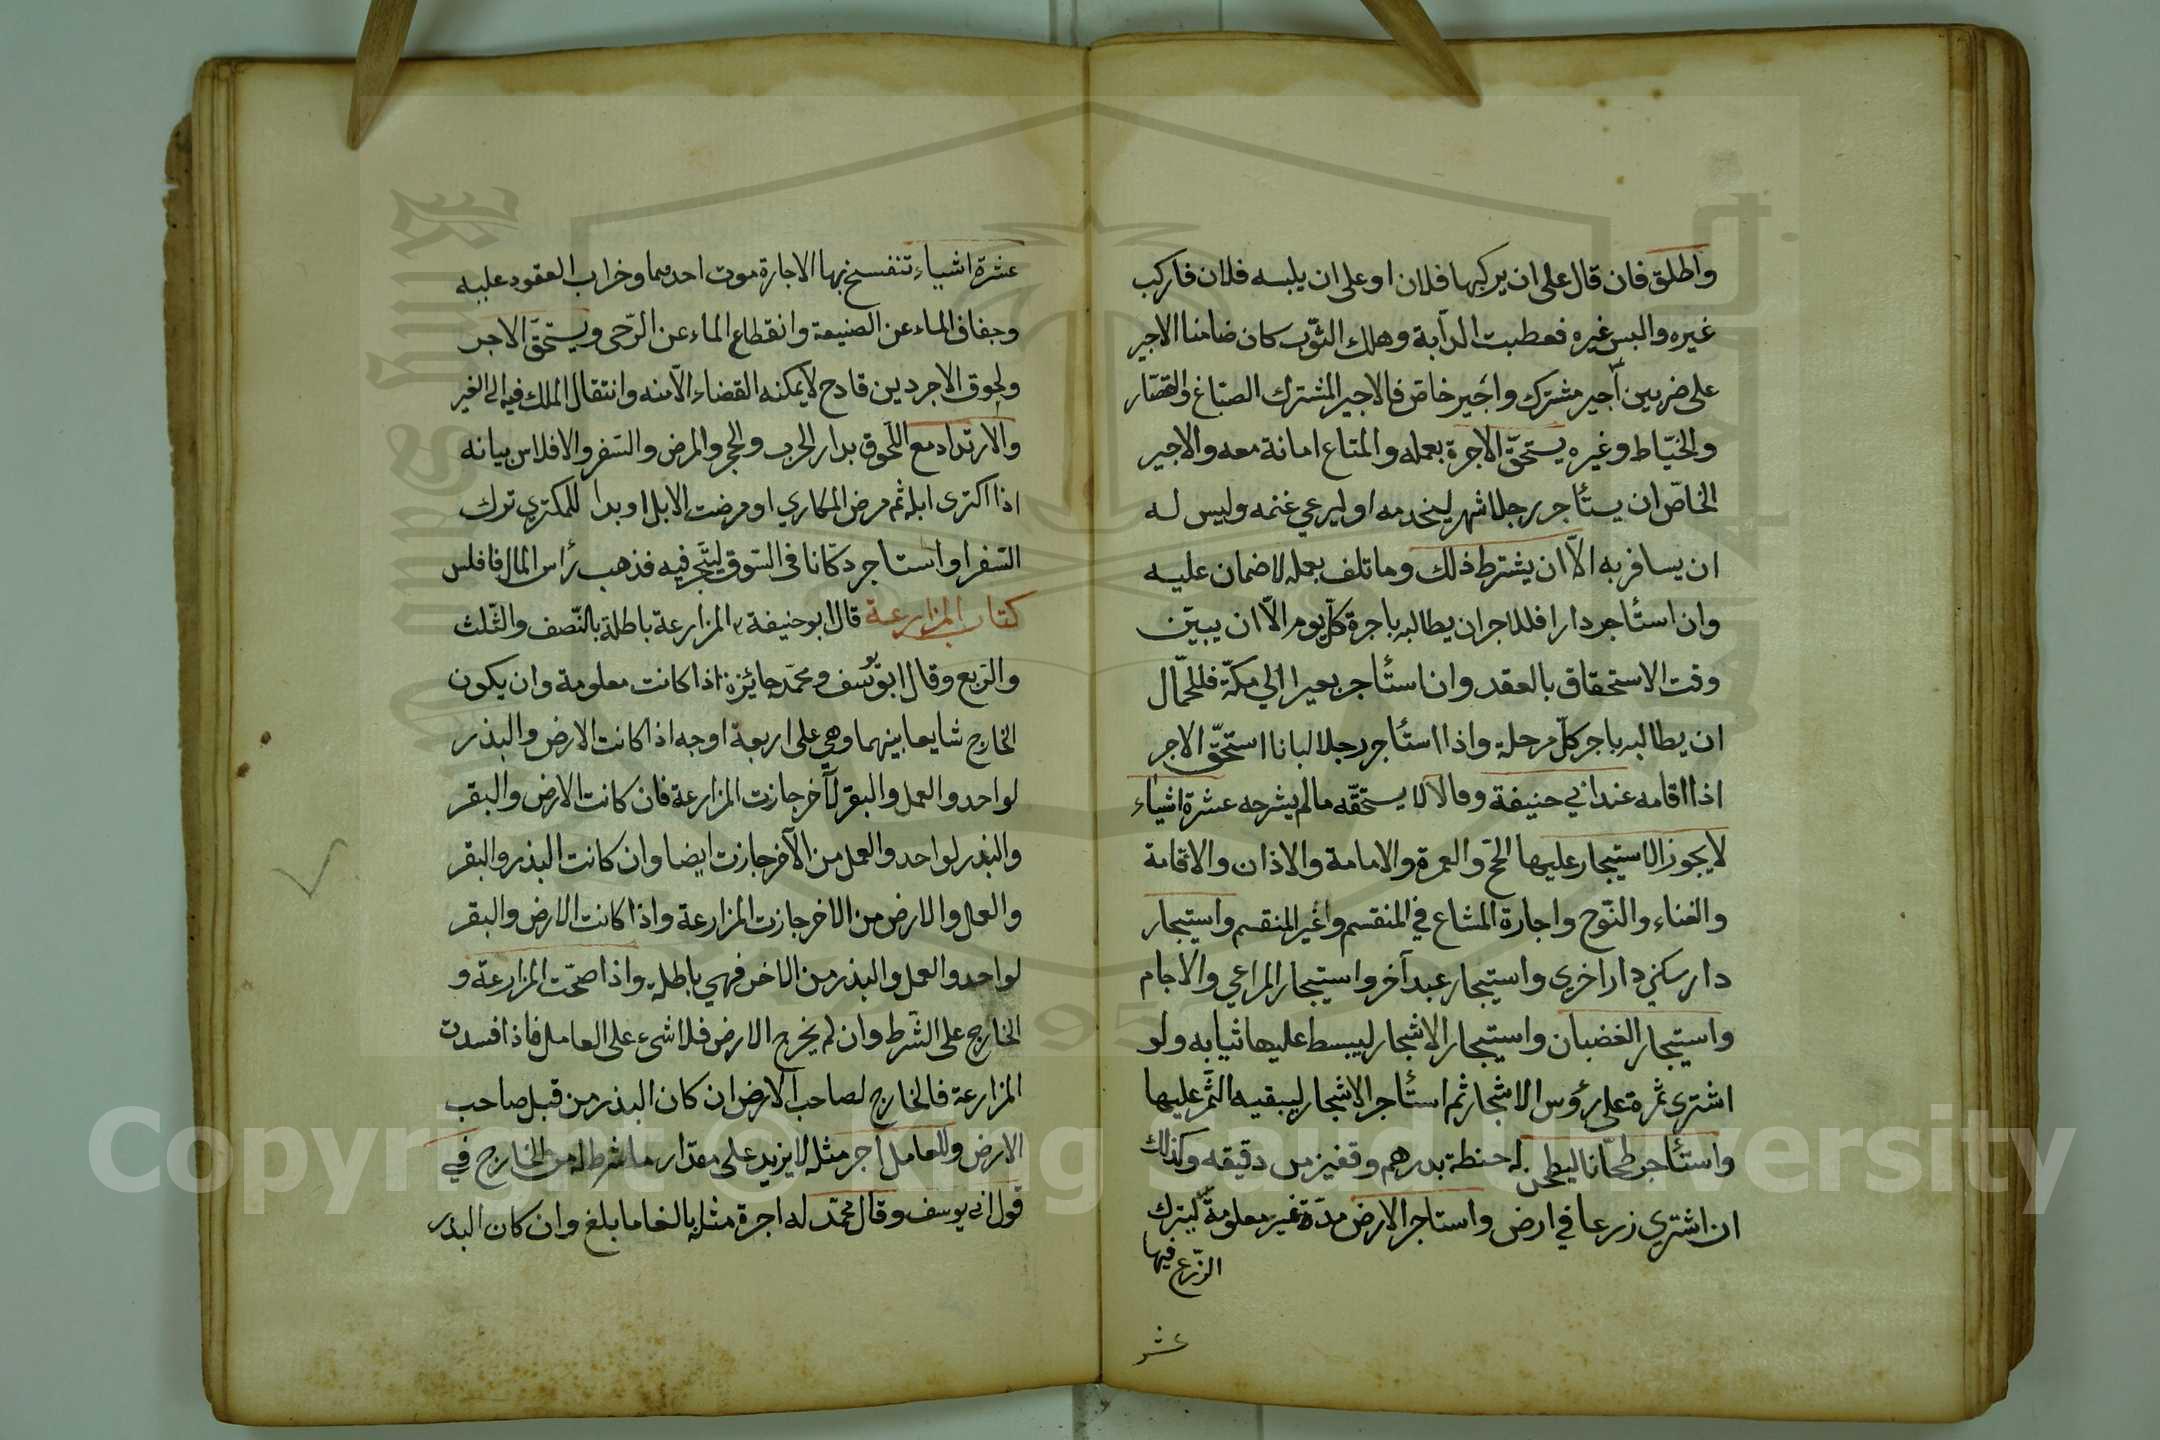 واطلق فان قال على ان يركبها فلان او على ان يلبسه فلان فاركب
غيره والبس غيره فعطبت الدابة وهلك الثوب كان ضامنا الاجير
على ضربين اجير مشترك واجير خاص فالاجير المشترك الصباغ والقصار
والخياط وغيره يستحق الاجرة بعمله والمتاع امانة معه والاجير
الخاص ان يستأجر رجلا شهر ليخدمه او ليرعي غنمه وليس له
ان يسافر به الا ان يشترط ذلك وما تلف بعمله لا ضمان عليه
وان استأجر دارا فللاجر ان يطالبه باجرة كل يوم الا ان يبين
وقت الاستحقاق بالعقد وان استأجر بعيرا الي مكة فللحمال
ان يطالبه باجر كل مرحلة واذا استأجر رجلا لبانا استحق الاجر
اذا اقامه عند ابي حنيفة وقالا لا يستحقه ما لم يشرجه عشرة اشياء
لا يجوز الاستيجار عليها الحج والعمرة والامامة والاذان والاقامة
والغناء والنوح واجارة المشاع في المنقسم وغير المنقسم واستيجار
دار سكني دار اخرى واستيجار عبد آخر واستيجار المراعي والاجام
واستيجار الغضبان واستيجار الاشجار ليبسط عليها ثيابه ولو
اشترى ثمرة على رؤس الاشجار ثم استأجر الاشجار ليبقيه الثمر عليها
واستأجر طحانا ليطحن له حنطة بدرهم وقفيز من دقيقه وكذلك
ان اشتري زرعا في ارض واستاجر الارض مدة غير معلومة ليترك
الزرع فيها
عشر
عشرة اشياء تنفسخ بها الاجارة موت احدهما وخراب العقود عليه
وجفاف الماء عن الضيعة وانقطاع الماء عن الرحى ويستحق الاجر
ولحوق الاجر دين قادح لا يمكنه القضاء الا منه وانتقال الملك فيه الى الغير
والارتداد مع اللحوق بدار الحرب والحجر والمرض والسفر والافلاس بيانه
اذا اكترى ابله ثم مرض المكاري او مرضت الابل او بدا للمكتري ترك
السفر او استاجر دكانا في السوق ليتجر فيه فذهب رأس المال فافلس
كتاب المزارعة قال ابو حنيفة المزارعة باطلة بالنصف والثلث
والربع وقال ابو يوسف ومحمد جائزة اذا كانت معلومة وان يكون
الخارج شايعا بينهما وهي على اربعة اوجه اذا كانت الارض والبذر
لواحد والعمل والبقر لآخر جازت المزارعة فان كانت الارض والبقر
والبذر لواحد والعمل من الآخر جازت ايضا وان كانت البذر والبقر
والعمل والارض من الاخر جازت المزارعة واذا كانت الارض والبقر
لواحد والعمل والبذر من الاخر فهي باطلة واذا صحت المزارعة و
الخارج على الشرط وان لم يخرج الارض فلا شيء على العامل فاذا فسدت
المزارعة فالخارج لصاحب الارض ان كان البذر من قبل صاحب
الارض وللعامل اجر مثله لا يزيد على مقدار ما شرط له من الخارج في
قول ابي يوسف وقال محمد له اجرة مثله بالغا ما بلغ وان كان البذر
Copyright © King Saud University
1957